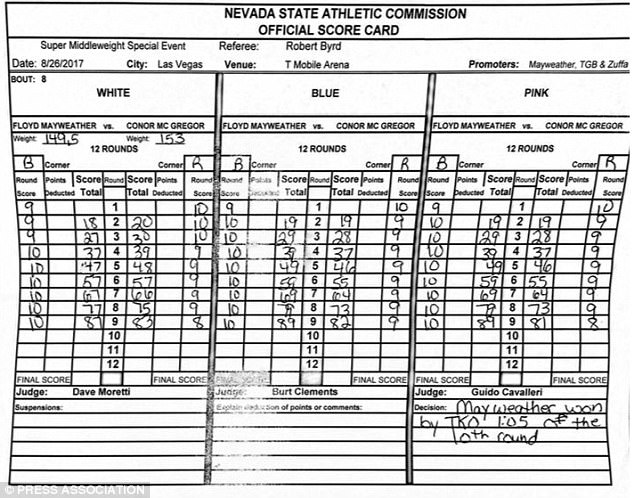 NEVADA STATE ATHLETIC COMMISSION
OFFICIAL SCORE CARD
Super Middleweight Special Event Referee: Robert Byrd
Date: 8/26/2017 City: Las Vegas Venue: T Mobile Arena Promoters: Mayweather, TGB & Zuffa
BOUT: 8
WHITE BLUE PINK
FLOYD MAYWEATHER vs. CONOR MC GREGOR FLOYD MAYWEATHER vs. CONOR MC GREGOR FLOYD MAYWEATHER vs. CONOR MC GREGOR
Weight: 149.5 Weight: 153
12 ROUNDS 12 ROUNDS 12 ROUNDS
B Corner Corner R B Corner Corner R B Corner Corner R
Round Score Points Deducted Score Total Round Score Total Points Deducted Round Score Round Score Points Deducted Score Total Round Score Total Points Deducted Round Score Round Score Points Deducted Score Total Round Score Total Points Deducted Round Score
9 1 10 9 1 10 9 1 10
9 18 2 20 10 10 19 2 19 9 10 19 2 19 9
9 27 3 30 10 10 29 3 28 9 10 29 3 28 9
10 37 4 39 9 10 39 4 37 9 10 39 4 37 9
10 47 5 48 9 10 49 5 46 9 10 49 5 46 9
10 57 6 57 9 10 59 6 55 9 10 59 6 55 9
10 67 7 66 9 10 69 7 64 9 10 69 7 64 9
10 77 8 75 9 10 79 8 73 9 10 79 8 73 9
10 87 9 83 8 10 89 9 82 9 10 89 9 81 8
10 10 10
11 11 11
12 12 12
FINAL SCORE FINAL SCORE FINAL SCORE FINAL SCORE FINAL SCORE FINAL SCORE
Judge: Dave Moretti Judge: Burt Clements Judge: Guido Cavalleri
Suspensions: Explain deduction of points or comments: Decision: Mayweather won
by TKO 1:05 of the
10th round
© PRESS ASSOCIATION